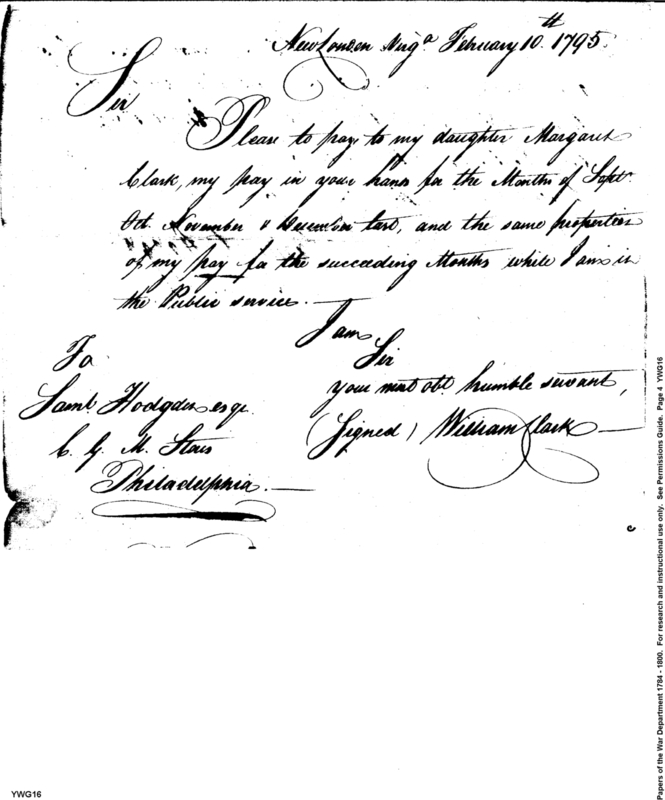 New London Virg<sup>a</sup> February 10<sup>th</sup> 1795.
Sir
Please to pay to my daughter Margaret
Clark, my pay in your hands for the Months of Sept<sup>r</sup>
Oct. November & December last, and the same proportion
of my pay for the succeeding Months while I am in
the Public service. —
I am
Sir
your most obt. humble servant,
(Signed) William Clark —
To
Saml. Hodgdon esqr.
C. G. M. Stores
Philadelphia. —
Papers of the War Department 1784 - 1800. For research and instructional use only. See Permissions Guide. Page 4 YWG16
YWG16